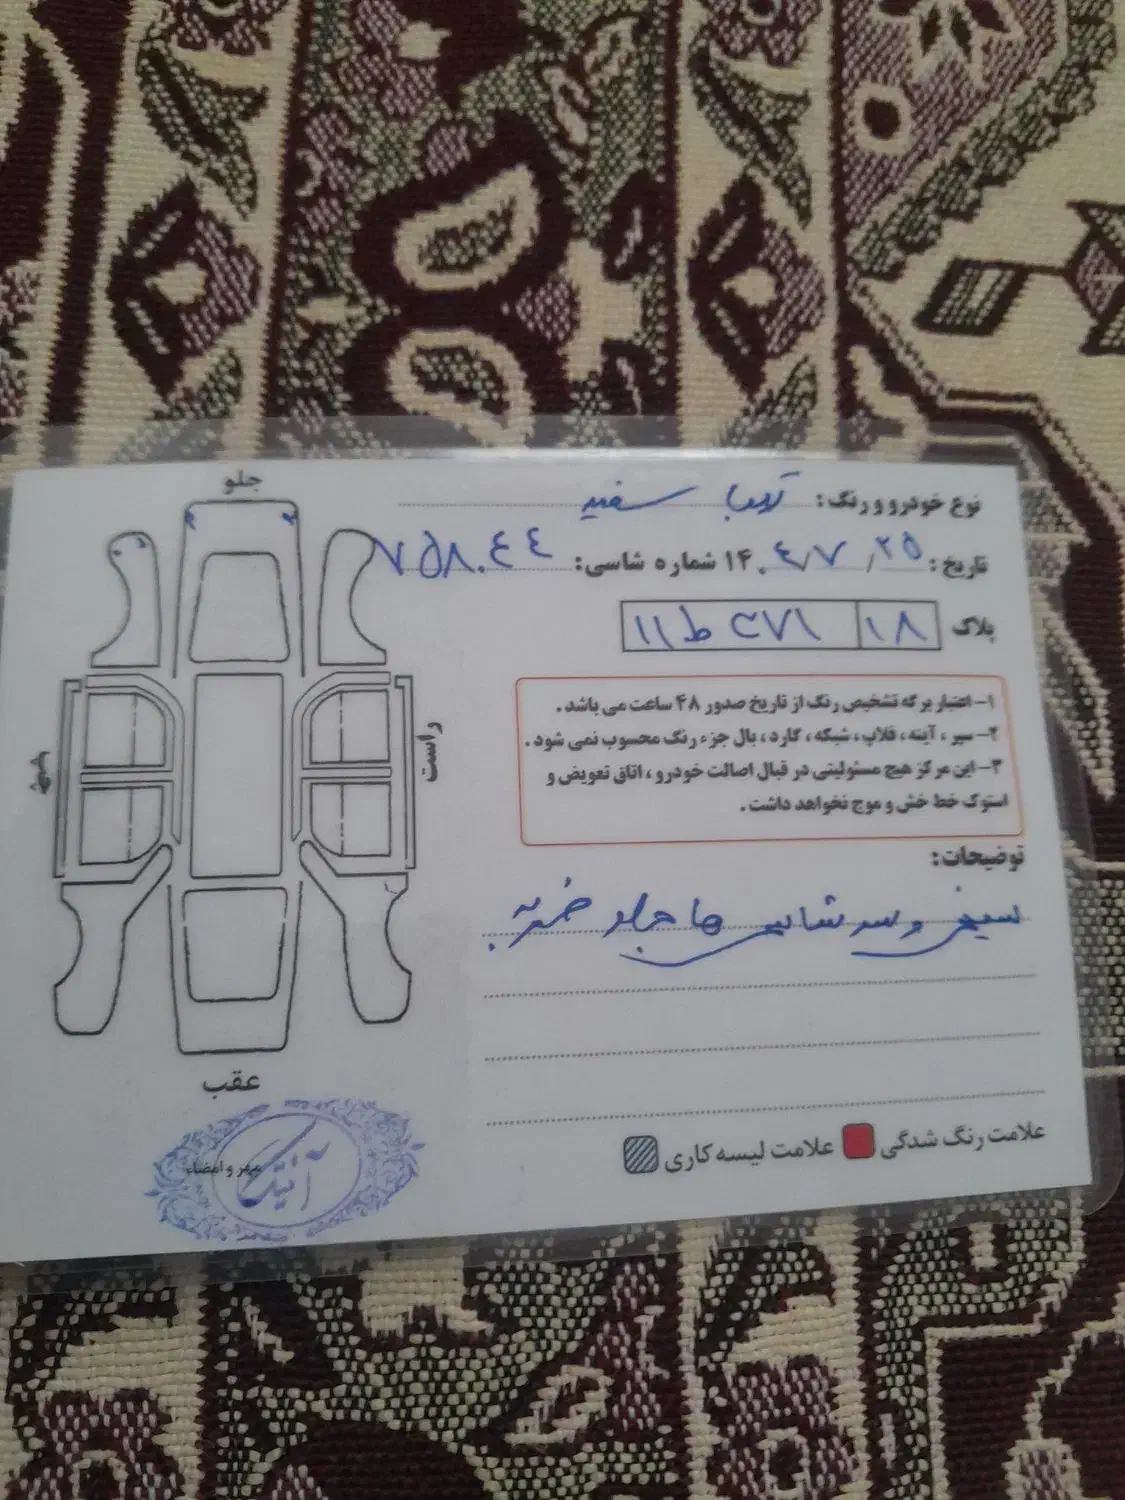 نوع خودرو و رنگ: تیبا سفید
تاریخ: ۲۵/۷/۱۴۰۴ شماره شاسی: ۷۵۸۰۴۴
پلاک ۱۸
۱- اعتبار برگه تشخیص رنگ از تاریخ صدور ۴۸ ساعت می باشد.
۲- سپر، آینه، قلاب، شبکه، گارد، بال جزء رنگ محسوب نمی شود.
۳- این مرکز هیچ مسئولیتی در قبال اصالت خودرو، اتاق تعویض و
استوک خط خش و موج نخواهد داشت.
توضیحات:
سینی و سر شاسی ها جلو ضربه.
علامت رنگ شدگی علامت لیسه کاری
جلو
راست
چپ
عقب
مهر و امضاء
آنتیک